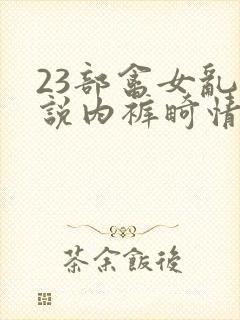 23部畜女乱
說内裤畸情
茶余飯後